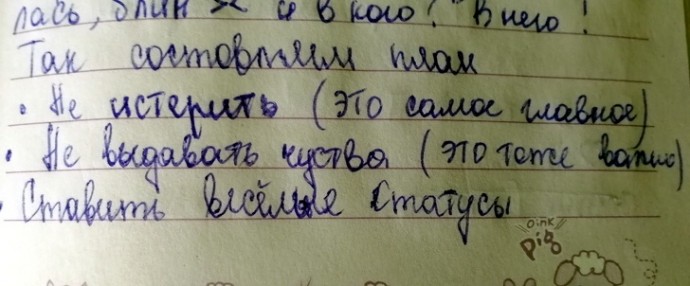 лась, блин я и в кого? В него!
Так состовляем план
• Не истерить (это самое главное)
• Не выдавать чуства (это тоже важно)
• Ставить весёлые статусы
oink
pig